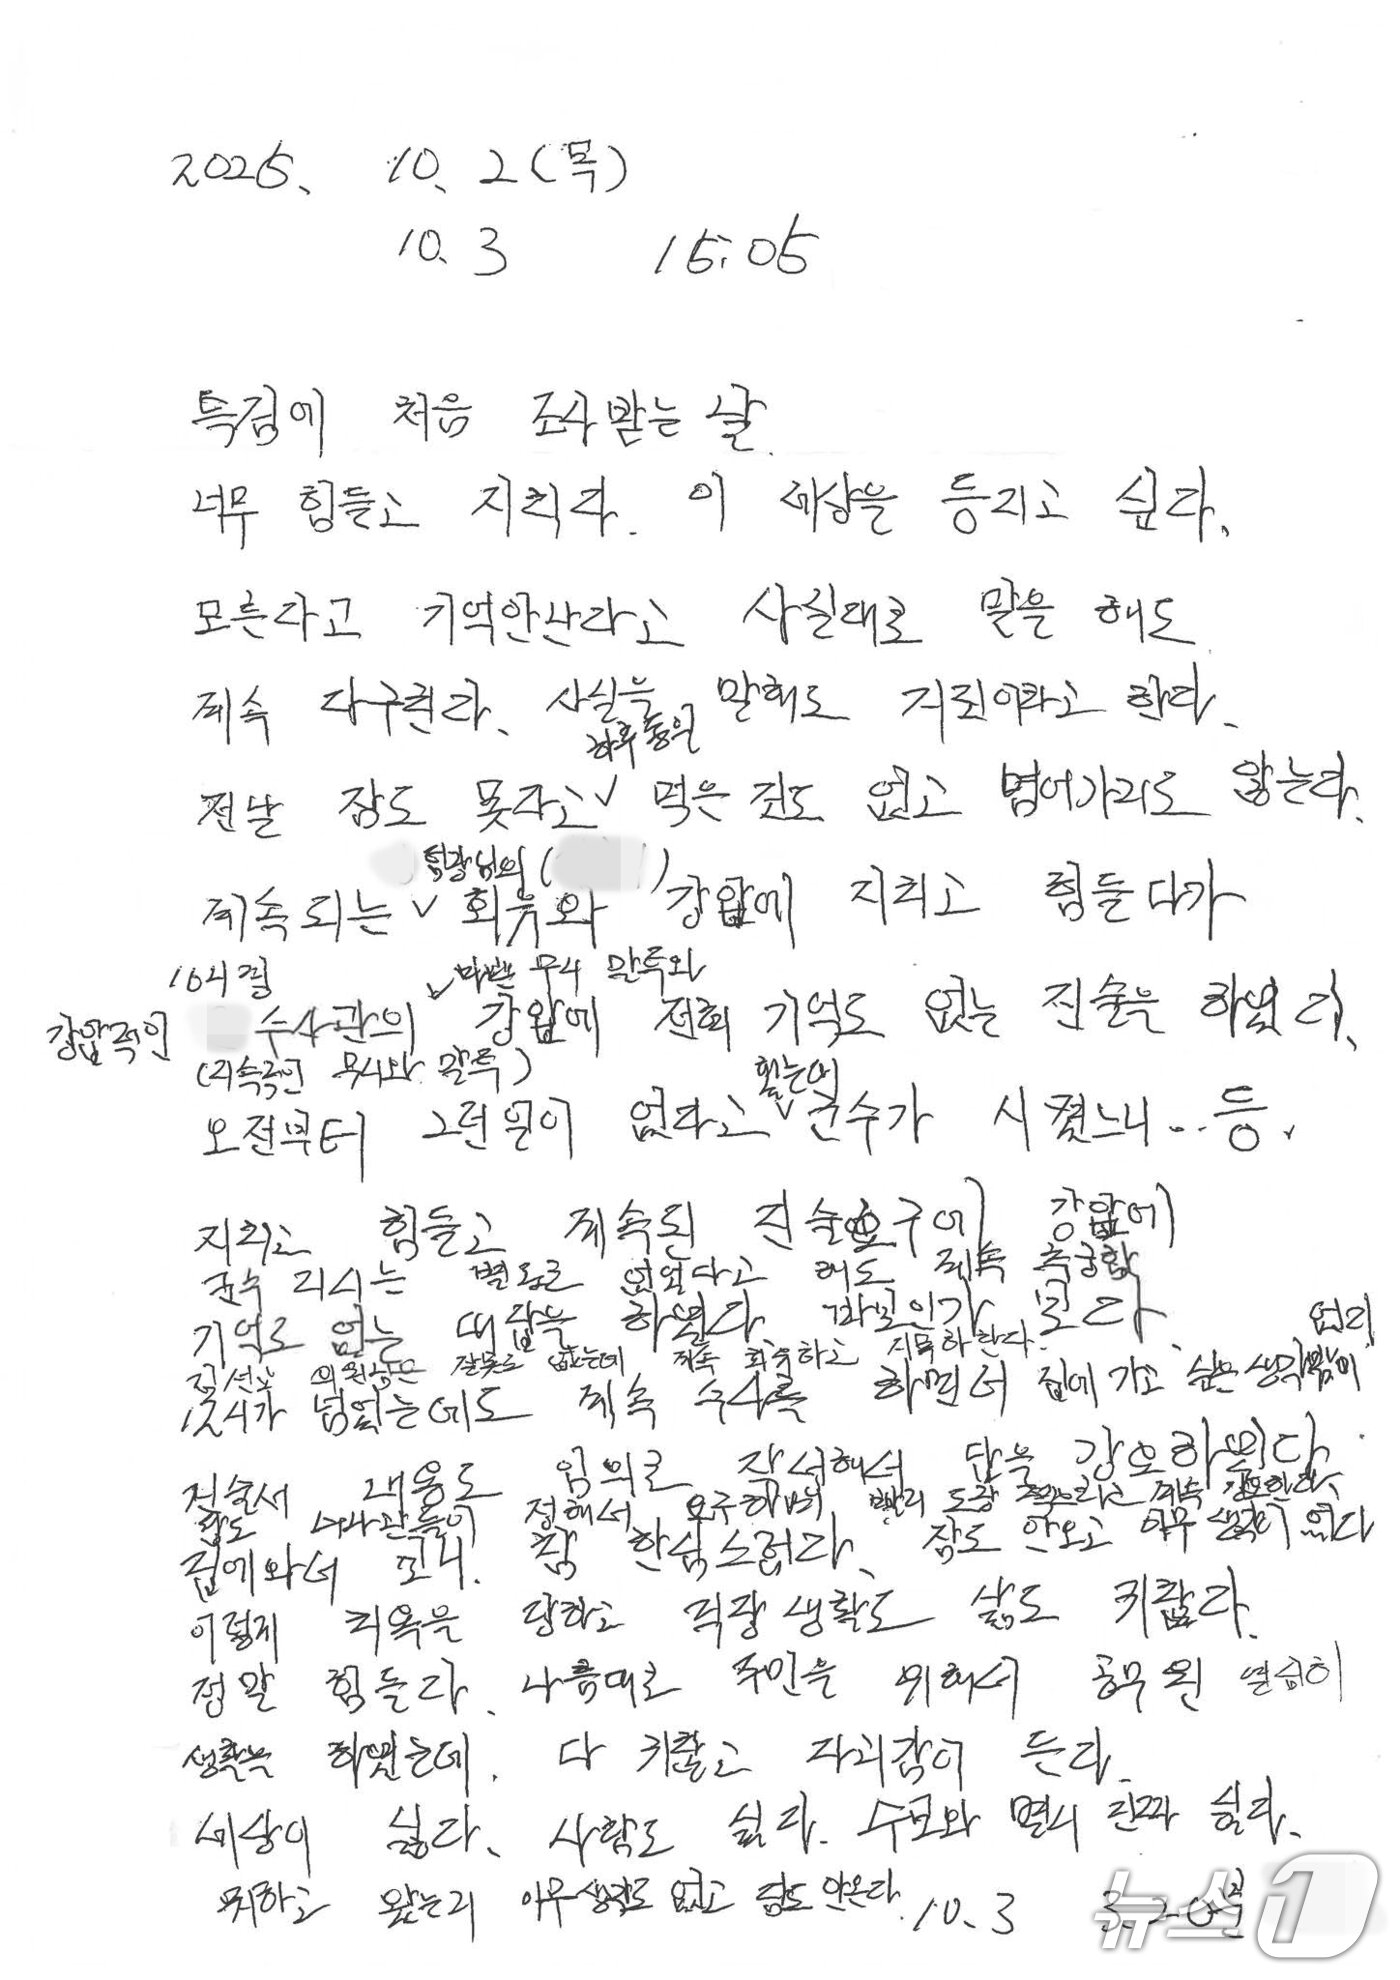 2025. 10. 2 (목)
10. 3 15:05
특검에 처음 조사받는 날.
너무 힘들고 지치다. 이 세상을 등지고 싶다.
모른다고 기억안난다고 사실대로 말을 해도
계속 다구친다. 사실을 말해도 거짓이라고 한다.
하루 종일
전날 잠도 못자고 ∨ 먹은 것도 없고 멈어가리도 않는다.
팀장님의 ( )
계속되는 ∨ 회유와 강압에 지치고 힘들다가
10시경 ∨ 무시 말투와
강압적인 수사관의 강압에 전혀 기억도 없는 진술을 하였다.
(지속적인 무시와 말투) 했는데
오전부터 그런일이 없다고 ∨ 군수가 시켰느니... 등.
지치고 힘들고 계속된 진술요구에 강압에
군수 지시는 별도로 없었다고 해도 계속 추궁함
기억도 없는 대답을 하였다. 바보인가 보다.
김선교 의원님은 잘못도 없는데 계속 회유하고 지목하란다. 없다
12시가 넘었는데도 계속 수사를 하면서 집에 가고 싶은 생각밖이
진술서 내용도 임의로 작성해서 답을 강요하였다.
답도 수사관들이 정해서 요구하며 빨리 도장 찍으라고 계속 강요한다.
집에와서 보니. 참 한심스럽다. 잠도 안오고 아무 생각이 없다
이렇게 치욕을 당하고 직장생활도 삶도 귀찮다.
정말 힘들다. 나름대로 주민을 위해서 공무원 열심히
생활을 하였는데. 다 귀찮고 자괴감이 든다.
세상이 싫다. 사람도 싫다. 수모와 멸시 진짜 싫다.
뭐하고 왔는지 아무생각도 없고 잠도 안온다. 10. 3 3:20분
뉴스1